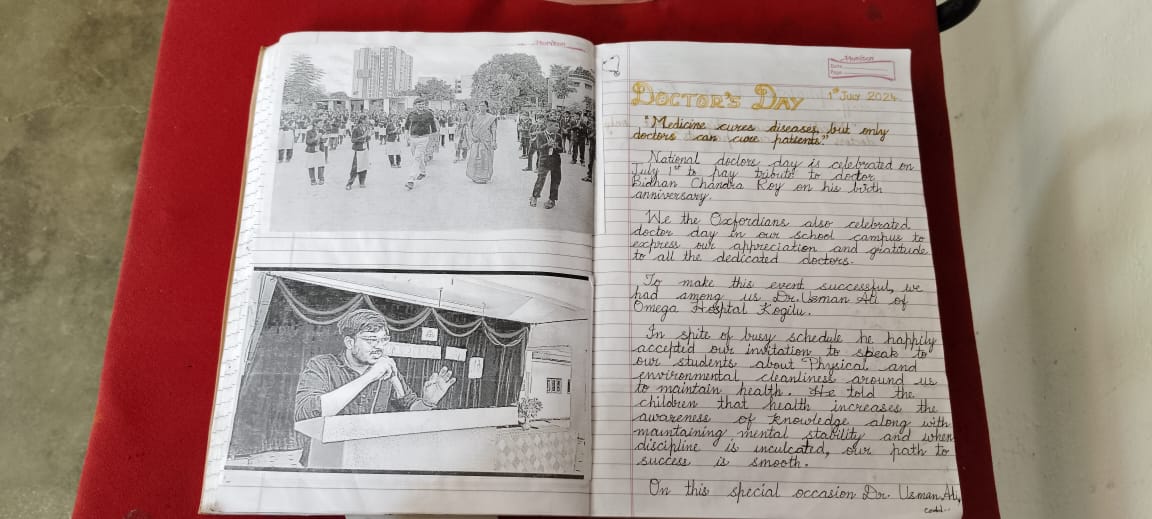 DOCTOR'S DAY 1st JULY 2024
"Medicine cures diseases, but only
doctors can cure patients."
National doctors day is celebrated on
July 1st to pay tribute to doctor
Bidhan Chandra Roy on his birth
anniversary.
We the Oxfordians also celebrated
doctor day in our school campus to
express our appreciation and gratitude
to all the dedicated doctors.
To make this event successful, we
had among us Dr. Usman Ali of
Omega Hospital Kogilu.
In spite of busy schedule he happily
accepted our invitation to speak to
our students about Physical and
environmental cleanliness around us
to maintain health. He told the
children that health increases the
awareness of knowledge along with
maintaining mental stability and when
discipline is inculcated, our path to
success is smooth.
On this special occasion Dr. Usman Ali,
contd..